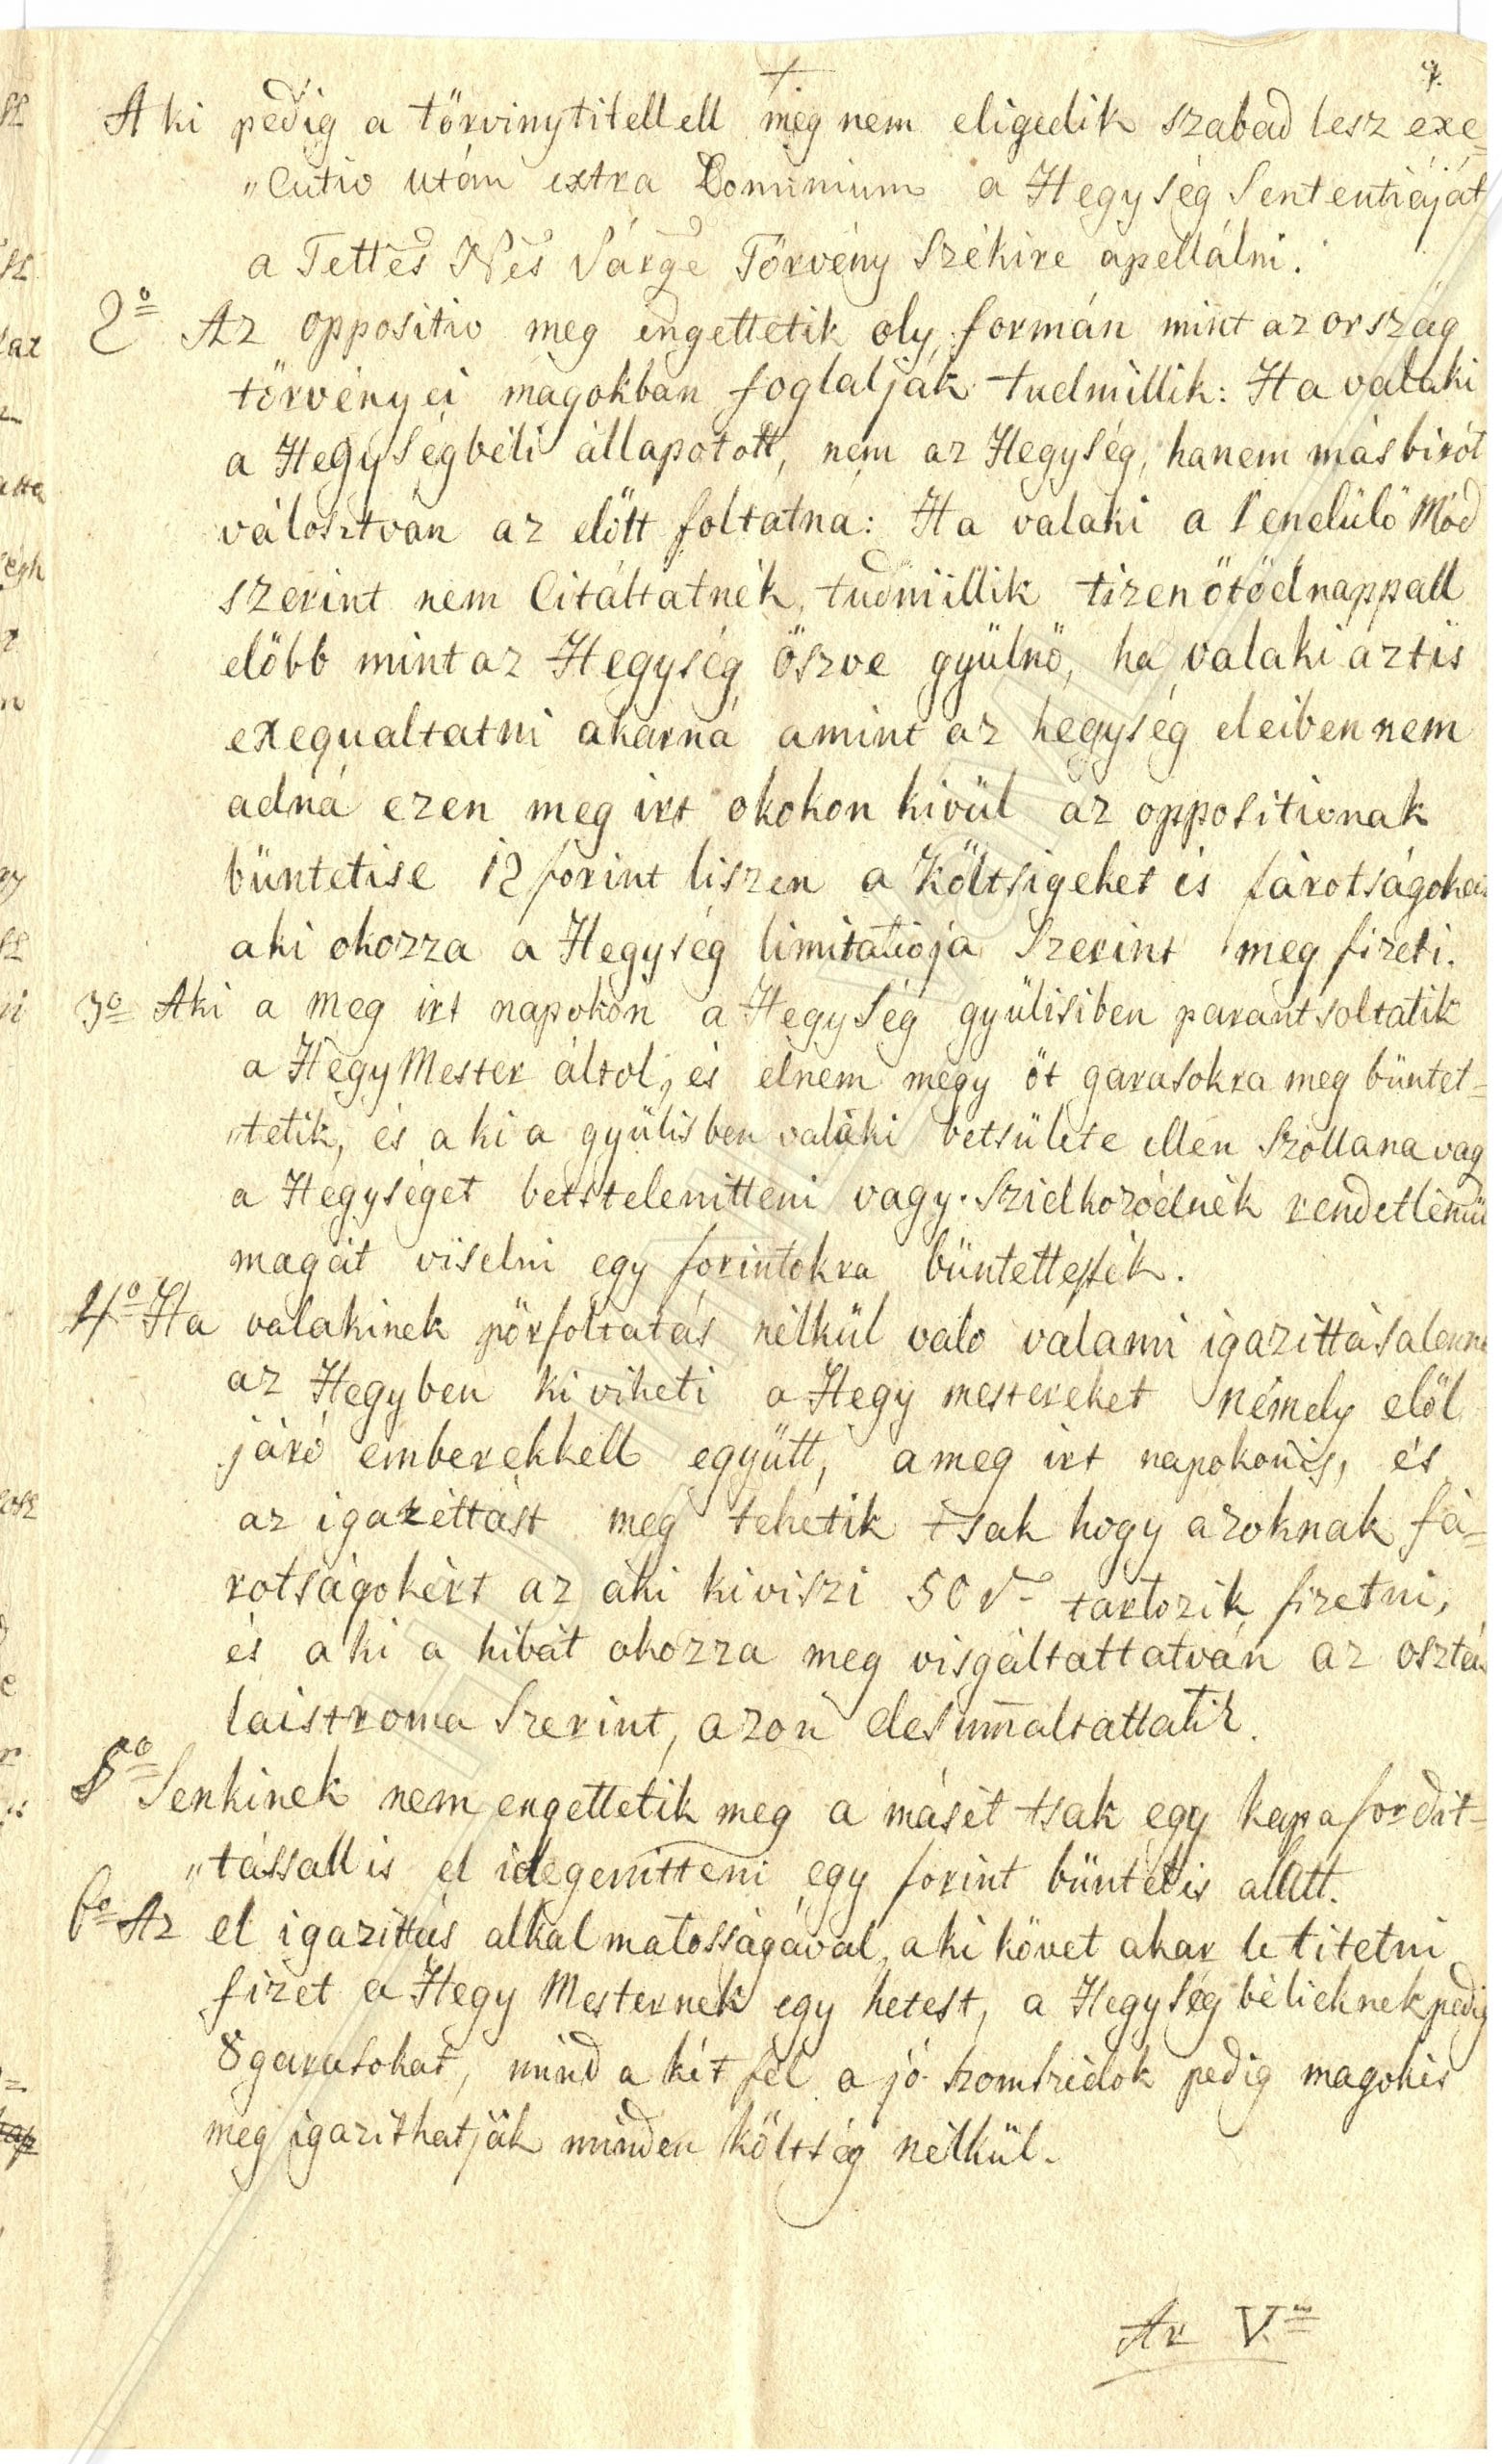 9.
Aki pedig a törvinytitellell meg nem eligedik szabad lesz exe=
"cutio után extra Dominium a Hegység Sententiáját
a Tettes Nes Várge Törvény Székire apellálni.
2o Az oppositio meg engettetik oly formán mint az ország
törvényei magokban foglalják tudmillik: Ha valaki
a Hegységbéli állapotott, nem az Hegység, hanem más birót
válosztván az előtt foltatná: Ha valaki a Rendülő Mód
szerint nem Citáltatnék, tudmillik tizenötödnappall
előbb mint az Hegység öszve gyülnö, ha valaki aztis
exequaltatni akarná amint az hegység eleiben nem
adná ezen meg irt okokon kivül az oppositionak
büntetise 12 forint liszen a Költsigeket is fárotságokat
aki okozza a Hegység limitatioja Szerint meg fizeti.
3o Aki a meg irt napokon a Hegység gyülisiben parantsoltatik
a HegyMester áltol, és elnem megy öt garasokra meg büntet=
"tetik, és a ki a gyülisben valaki betsülete ellen Szóllana vag
a Hegységet betstelenitteni vagy Szidkozódnék rendetlenül
magát viselni egy forintokra büntettessék.
4o Ha valakinek pörfoltatás nélkül való valami igazittása lenne
az Hegyben ki viheti a Hegy mestereket némely elől
járó emberekkell együtt, a meg irt napokonis, és
az igazéttást meg tehetik tsak hogy azoknak fá=
rotságokért az aki kiviszi 50 d tartozik fizetni,
és a ki a hibát okozza meg visgáltattatván az osztá
laistroma Szerint, azon desummaltattatik.
5to Senkinek nem engettetik meg a másét tsak egy kapa fordit=
"tássall is el idegenitteni egy forint büntetis alatt.
6o Az el igazittás alkalmatosságával, aki követ akar le titetni
fizet a Hegy Mesternek egy hetest, a Hegység bélieknek pedig
8 garasokat, mind a kit fél a jó szomszidok pedig magokis
meg igazithatják minden költség nélkül.
Az V.